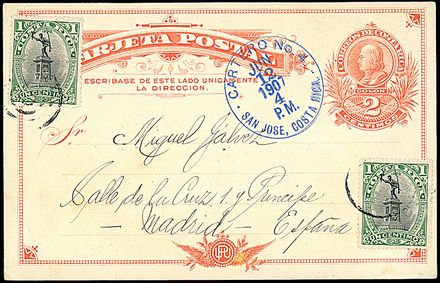 TARJETA POSTAL
ESCRIBASE DE ESTE LADO UNICAMENTE
LA DIRECCION.
CORREOS DE COSTA RICA
COLON
2
CENTIMOS
CARTERO No. 4
JAN
12
1907
4
P.M.
SAN JOSE, COSTA RICA.
1 1
UN CENTIMO
Sr. Miguel Galvez
Calle de la Cruz, 1 y Principe
— Madrid — España
1 1
UN CENTIMO